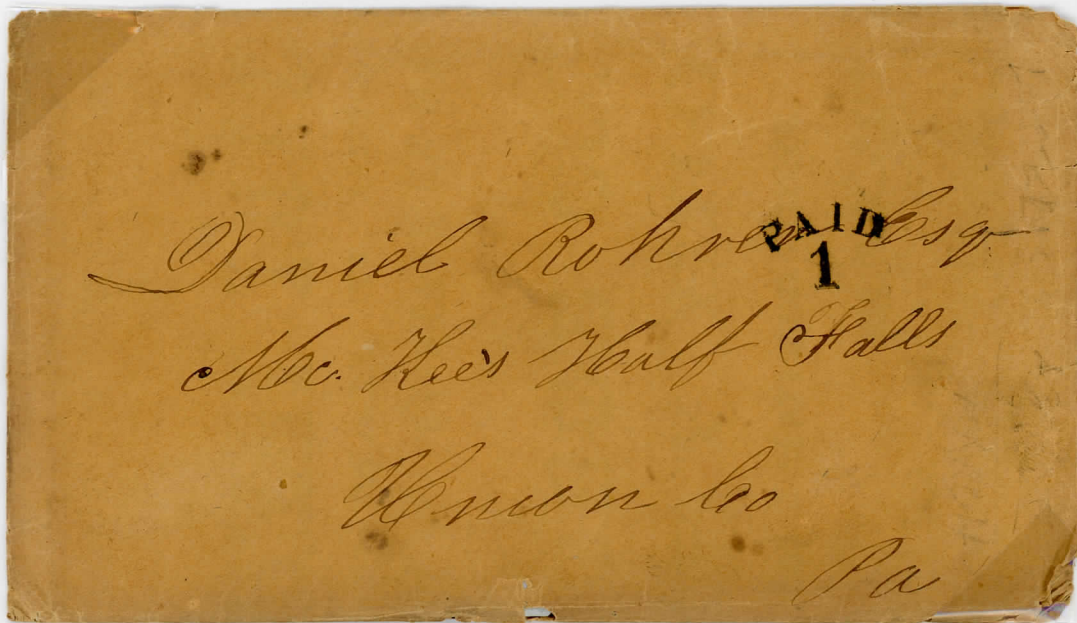 Daniel Rohrer Esqr
PAID
1
Mc. Kee's Half Falls
Union Co
Pa